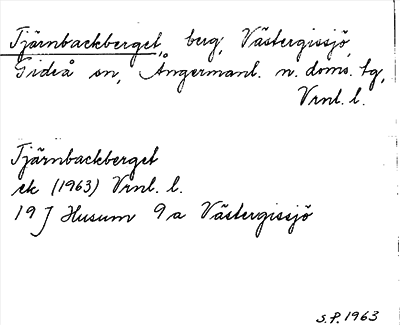 Tjärnbackberget, berg, Västergissjö,
Gideå sn, Ångermanl. n. doms. tg,
Vrnl. l.
Tjärnbackberget
ek (1963) Vrnl. l.
19 J Husum 9 a Västergissjö
S.P. 1963